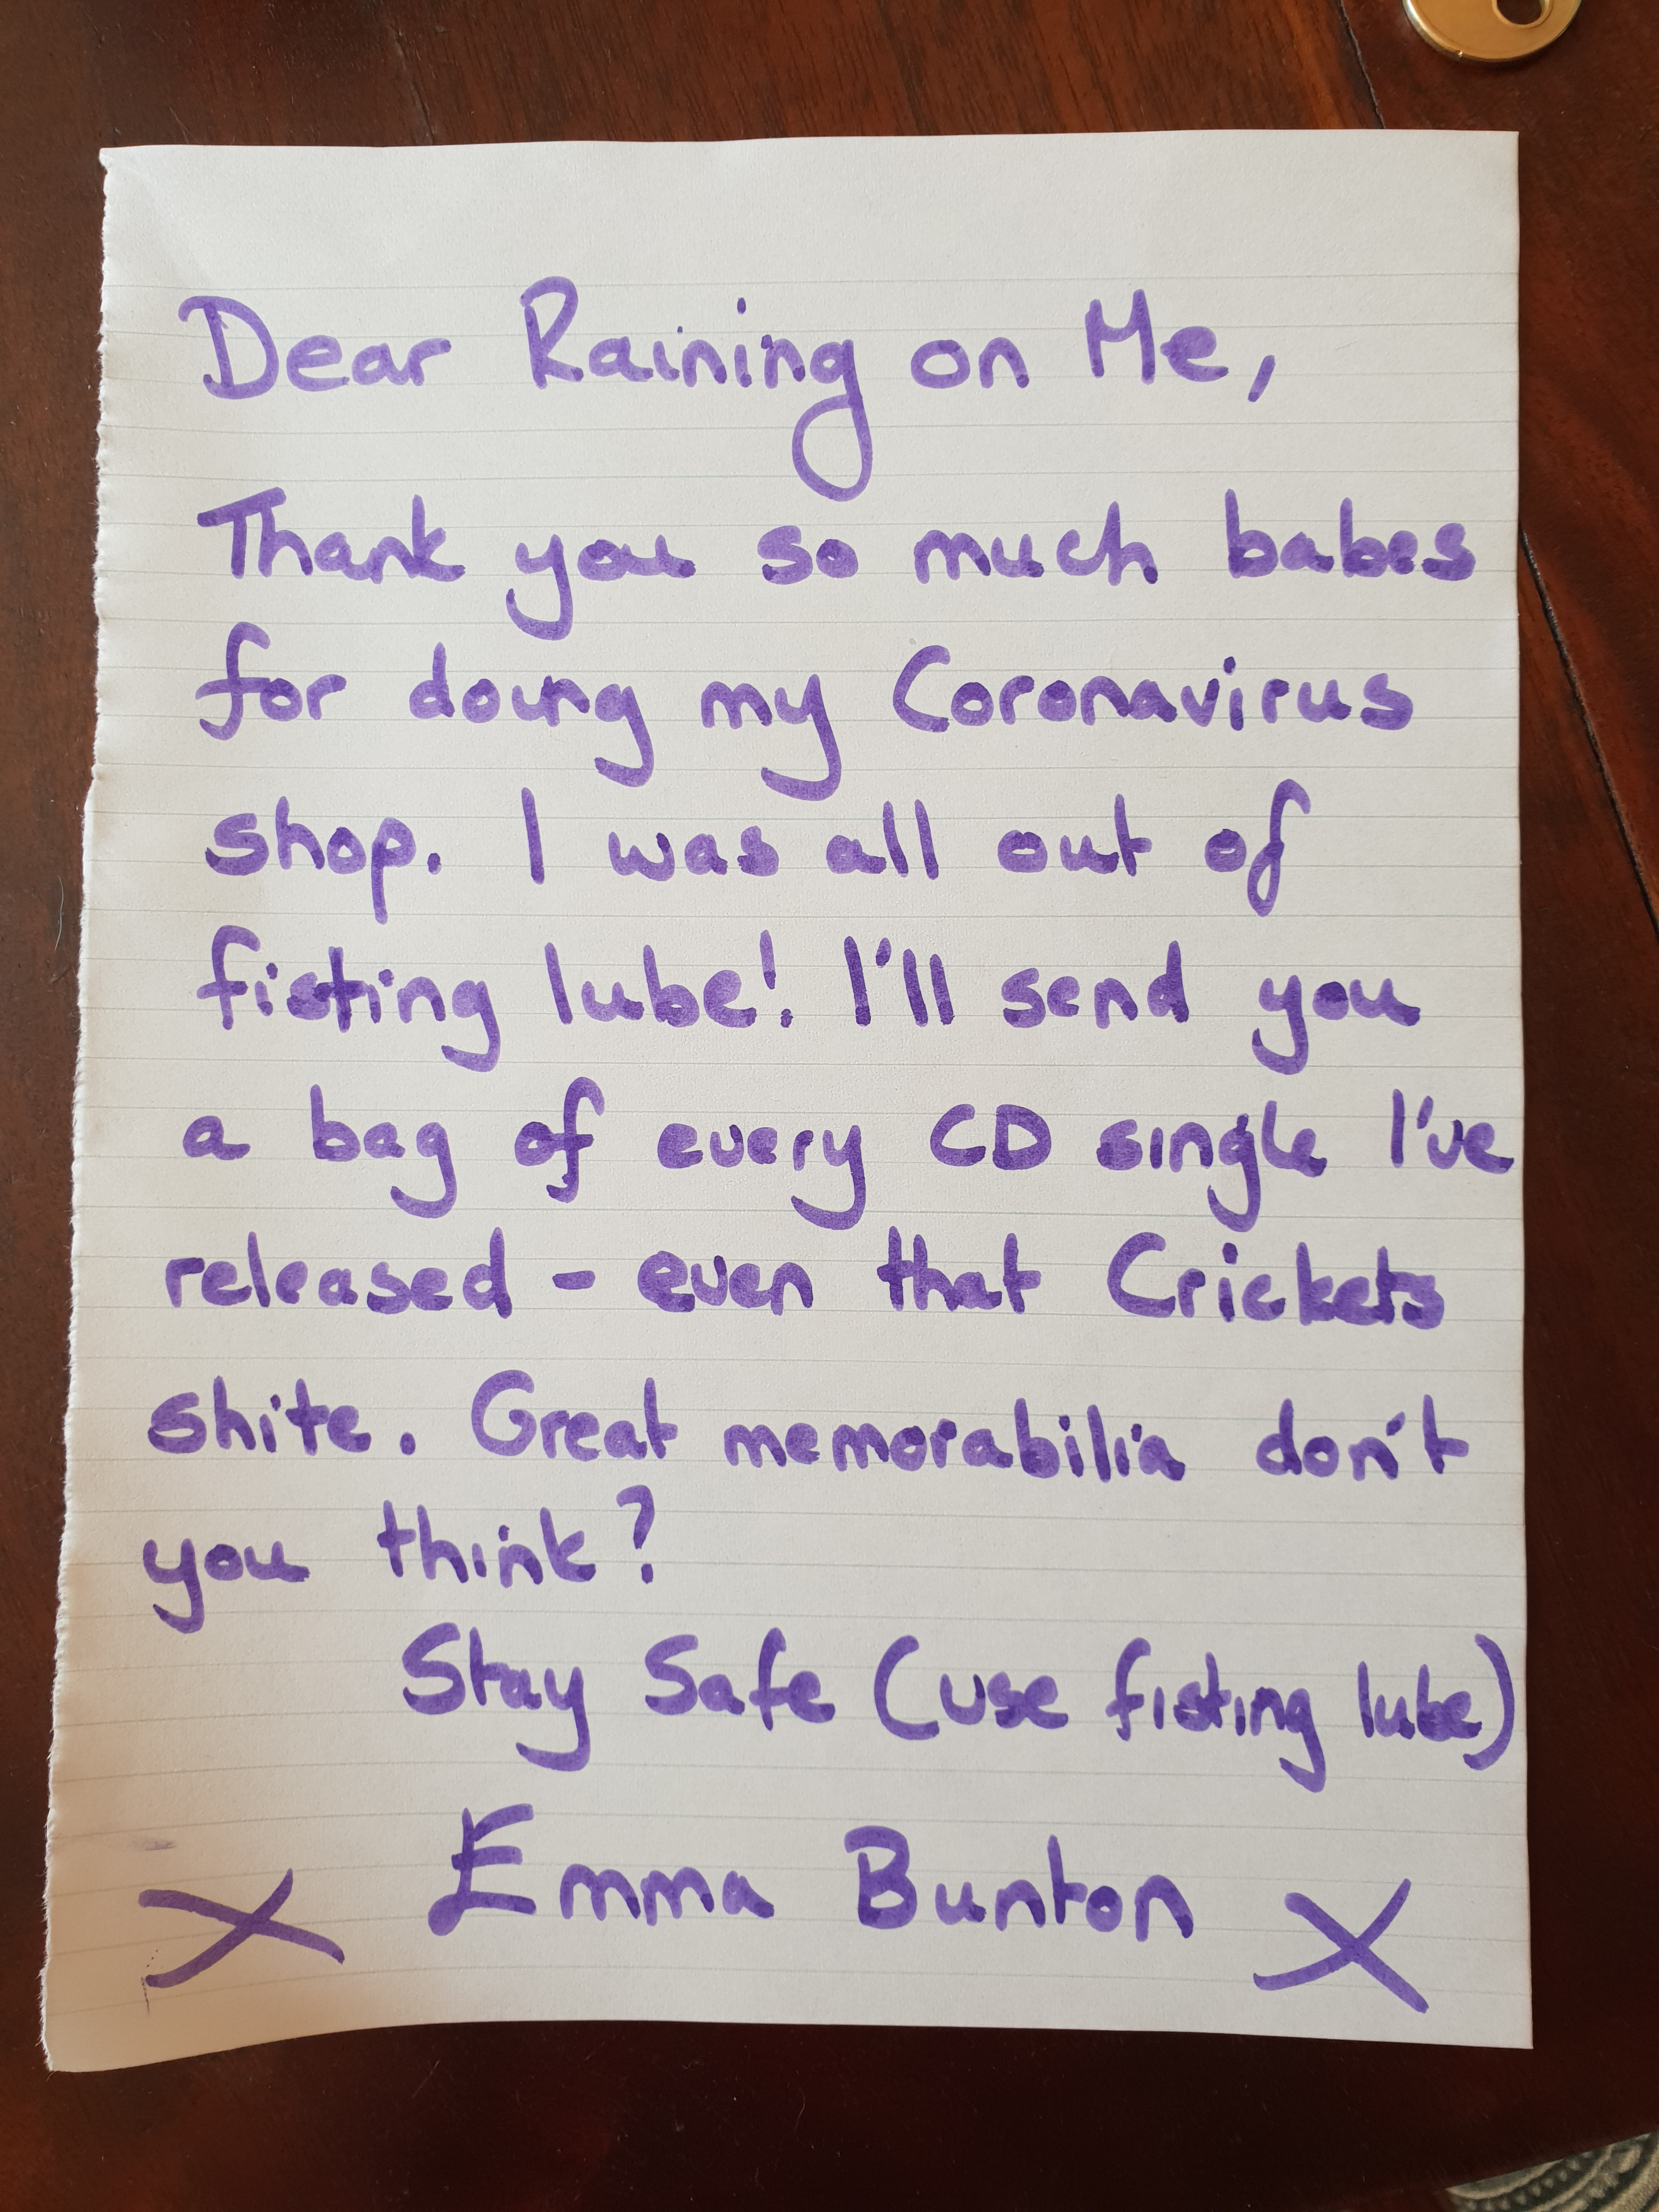 Dear Raining on Me,
Thank you so much babes
for doing my Coronavirus
shop. I was all out of
fisting lube! I'll send you
a bag of every CD single I've
released - even that Crickets
shite. Great memorabilia don't
you think?
Stay Safe (use fisting lube)
X Emma Bunton X